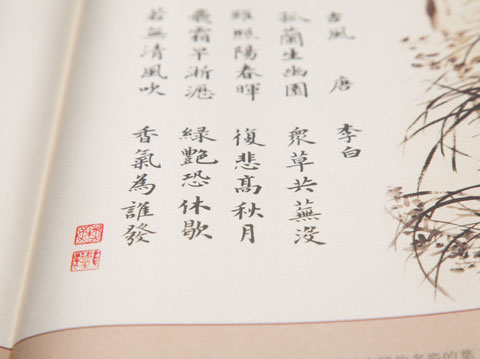 古風 唐 李白
孤蘭生幽園 衆草共蕪沒
雖照陽春暉 復悲高秋月
飛霜早淅瀝 綠艷恐休歇
若無清風吹 香氣為誰發